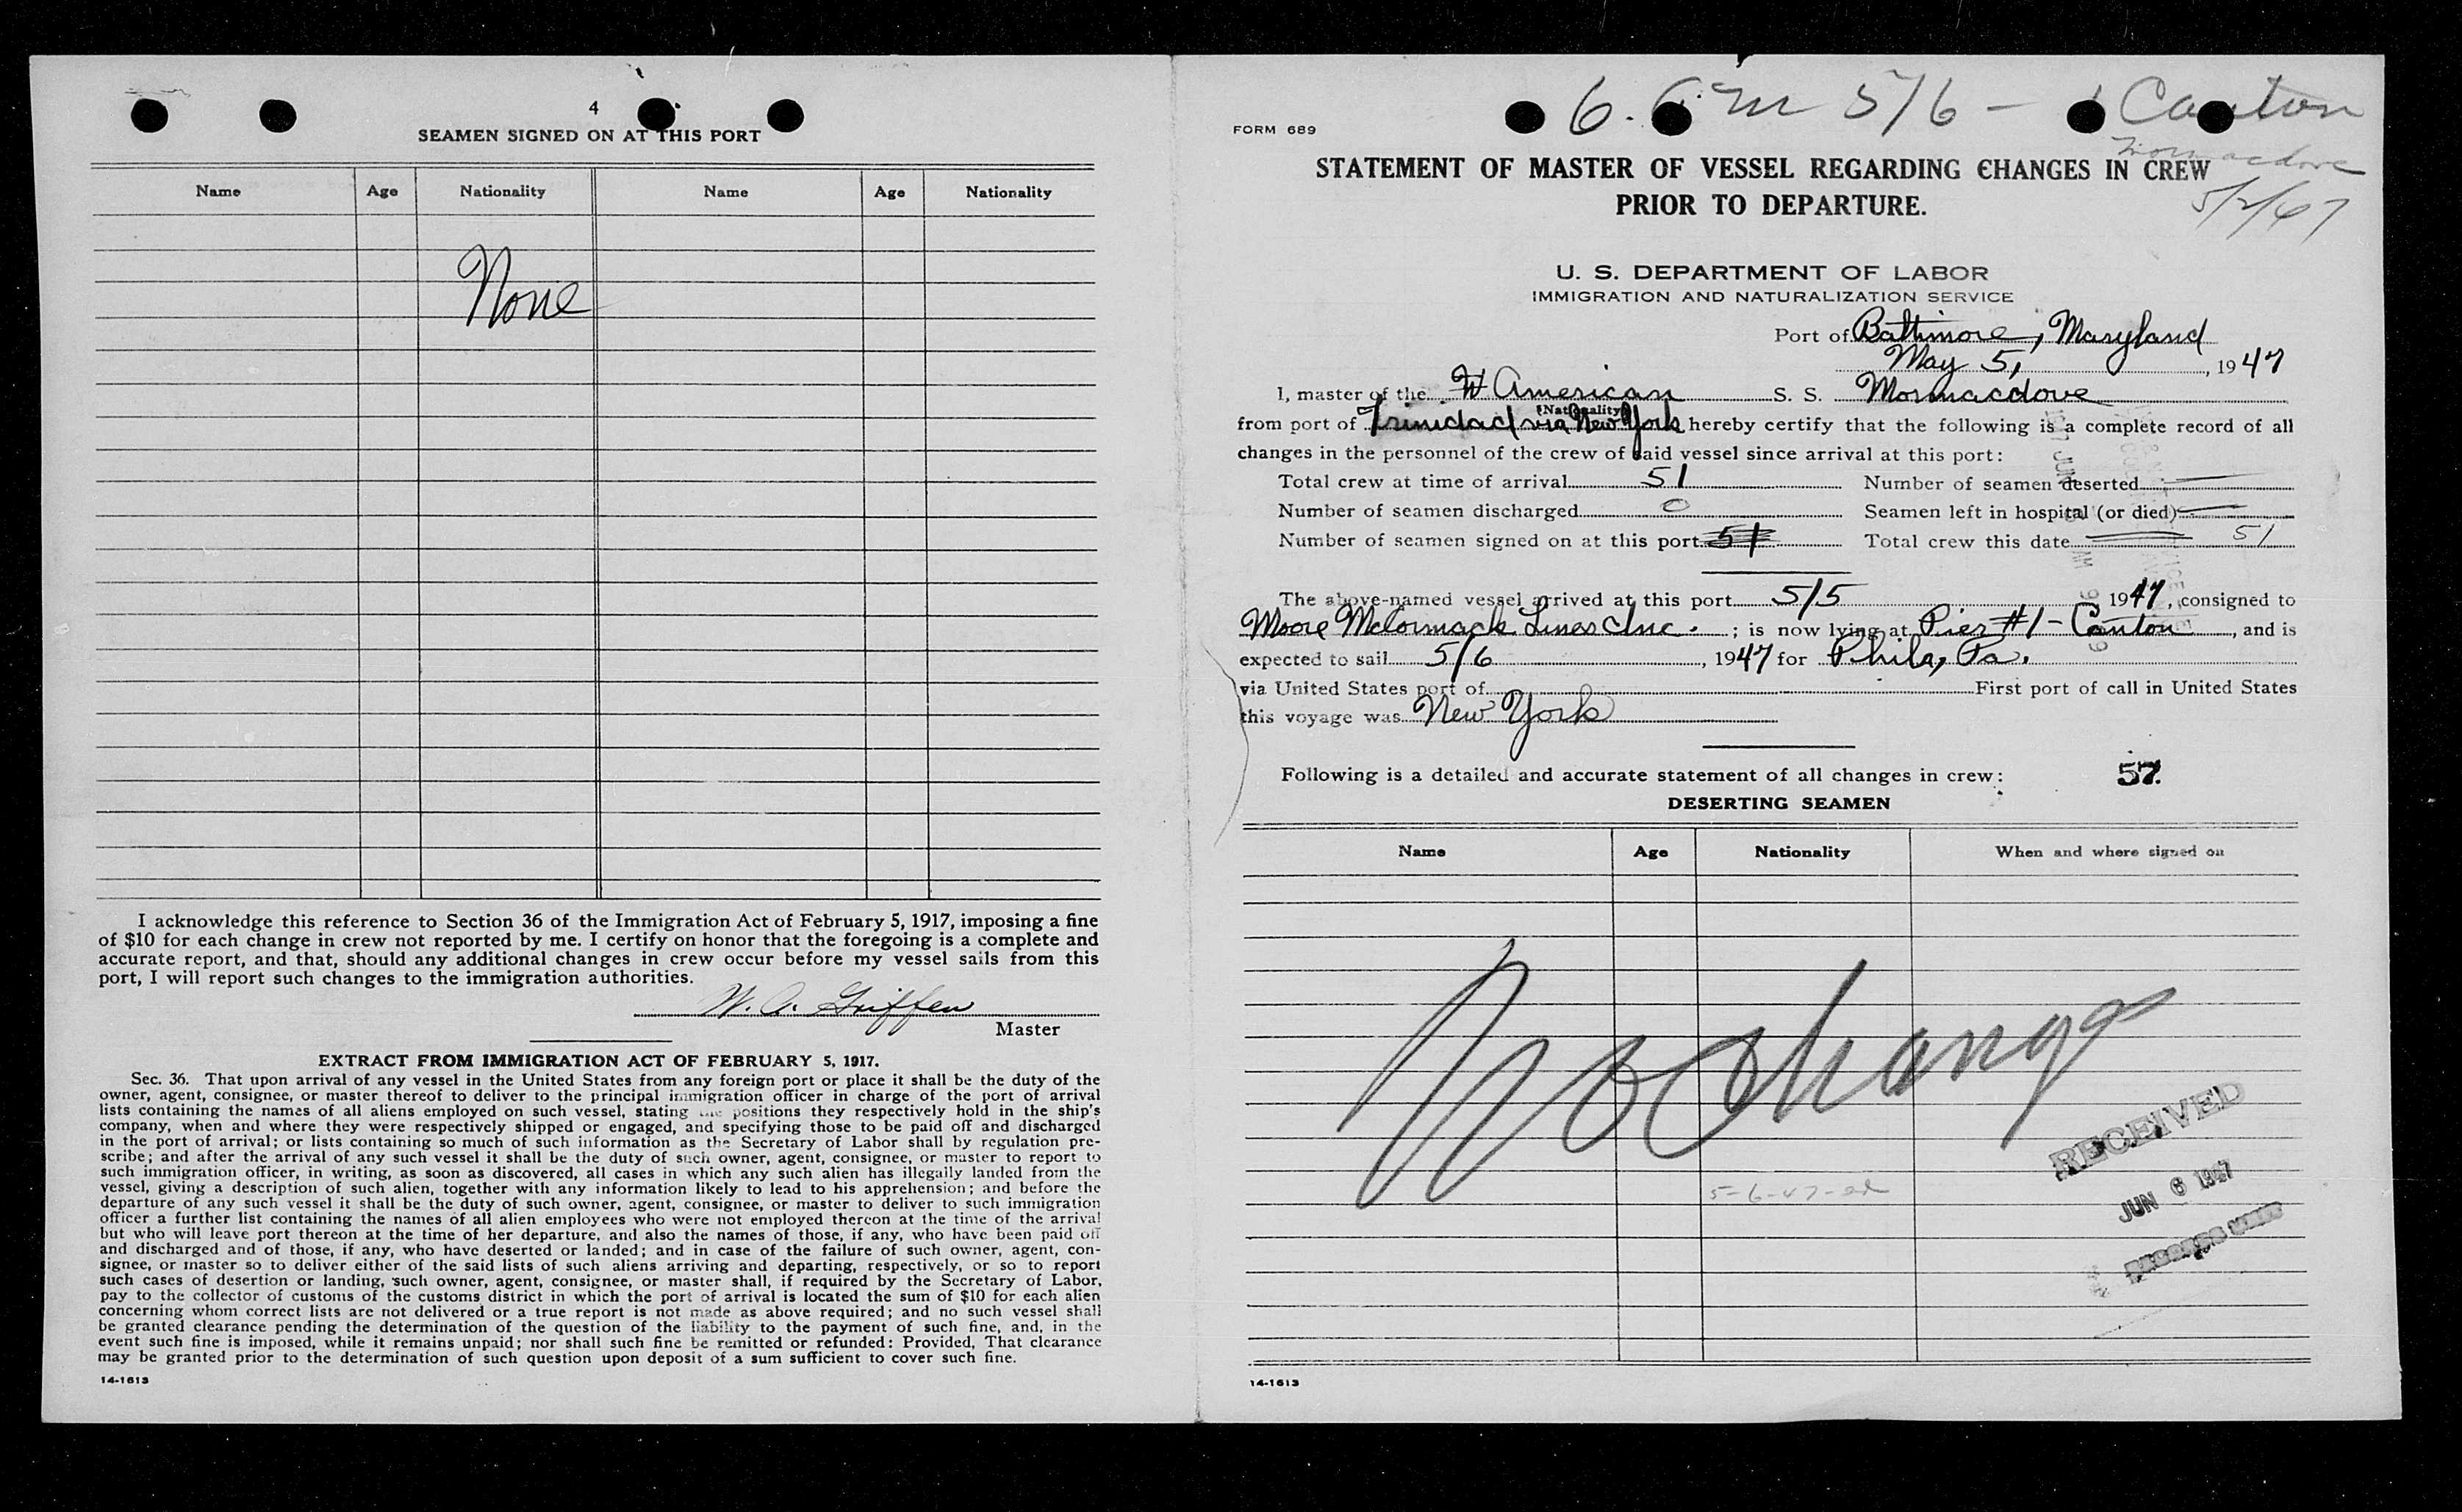 4
SEAMEN SIGNED ON AT THIS PORT
Name Age Nationality Name Age Nationality
None
I acknowledge this reference to Section 36 of the Immigration Act of February 5, 1917, imposing a fine
of $10 for each change in crew not reported by me. I certify on honor that the foregoing is a complete and
accurate report, and that, should any additional changes in crew occur before my vessel sails from this
port, I will report such changes to the immigration authorities.
W. A. Griffen
Master
EXTRACT FROM IMMIGRATION ACT OF FEBRUARY 5, 1917.
Sec. 36. That upon arrival of any vessel in the United States from any foreign port or place it shall be the duty of the
owner, agent, consignee, or master thereof to deliver to the principal immigration officer in charge of the port of arrival
lists containing the names of all aliens employed on such vessel, stating the positions they respectively hold in the ship's
company, when and where they were respectively shipped or engaged, and specifying those to be paid off and discharged
in the port of arrival; or lists containing so much of such information as the Secretary of Labor shall by regulation pre-
scribe; and after the arrival of any such vessel it shall be the duty of such owner, agent, consignee, or master to report to
such immigration officer, in writing, as soon as discovered, all cases in which any such alien has illegally landed from the
vessel, giving a description of such alien, together with any information likely to lead to his apprehension; and before the
departure of any such vessel it shall be the duty of such owner, agent, consignee, or master to deliver to such immigration
officer a further list containing the names of all alien employees who were not employed thereon at the time of the arrival
but who will leave port thereon at the time of her departure, and also the names of those, if any, who have been paid off
and discharged and of those, if any, who have deserted or landed; and in case of the failure of such owner, agent, con-
signee, or master so to deliver either of the said lists of such aliens arriving and departing, respectively, or so to report
such cases of desertion or landing, such owner, agent, consignee, or master shall, if required by the Secretary of Labor,
pay to the collector of customs of the customs district in which the port of arrival is located the sum of $10 for each alien
concerning whom correct lists are not delivered or a true report is not made as above required; and no such vessel shall
be granted clearance pending the determination of the question of the liability to the payment of such fine, and, in the
event such fine is imposed, while it remains unpaid; nor shall such fine be remitted or refunded: Provided, That clearance
may be granted prior to the determination of such question upon deposit of a sum sufficient to cover such fine.
14-1613
6. 5/6 - Canton
Mormacdove
FORM 689
STATEMENT OF MASTER OF VESSEL REGARDING CHANGES IN CREW
PRIOR TO DEPARTURE.
5/2/47
U. S. DEPARTMENT OF LABOR
IMMIGRATION AND NATURALIZATION SERVICE
Port of Baltimore, Maryland
May 5, 1947
I, master of the American S. S. Mormacdove
(Nationality)
from port of Trinidad via New York hereby certify that the following is a complete record of all
changes in the personnel of the crew of said vessel since arrival at this port:
Total crew at time of arrival 51 Number of seamen deserted —
Number of seamen discharged 0 Seamen left in hospital (or died) —
Number of seamen signed on at this port 51 Total crew this date 51
The above-named vessel arrived at this port 5/5 1947, consigned to
Moore McCormack Lines Inc. ; is now lying at Pier #1 - Canton, and is
expected to sail 5/6, 1947 for Phila, Pa.
via United States port of First port of call in United States
this voyage was New York
Following is a detailed and accurate statement of all changes in crew: 57.
DESERTING SEAMEN
Name Age Nationality When and where signed on
No Change
5-6-47
RECEIVED
JUN 6 1947
14-1613